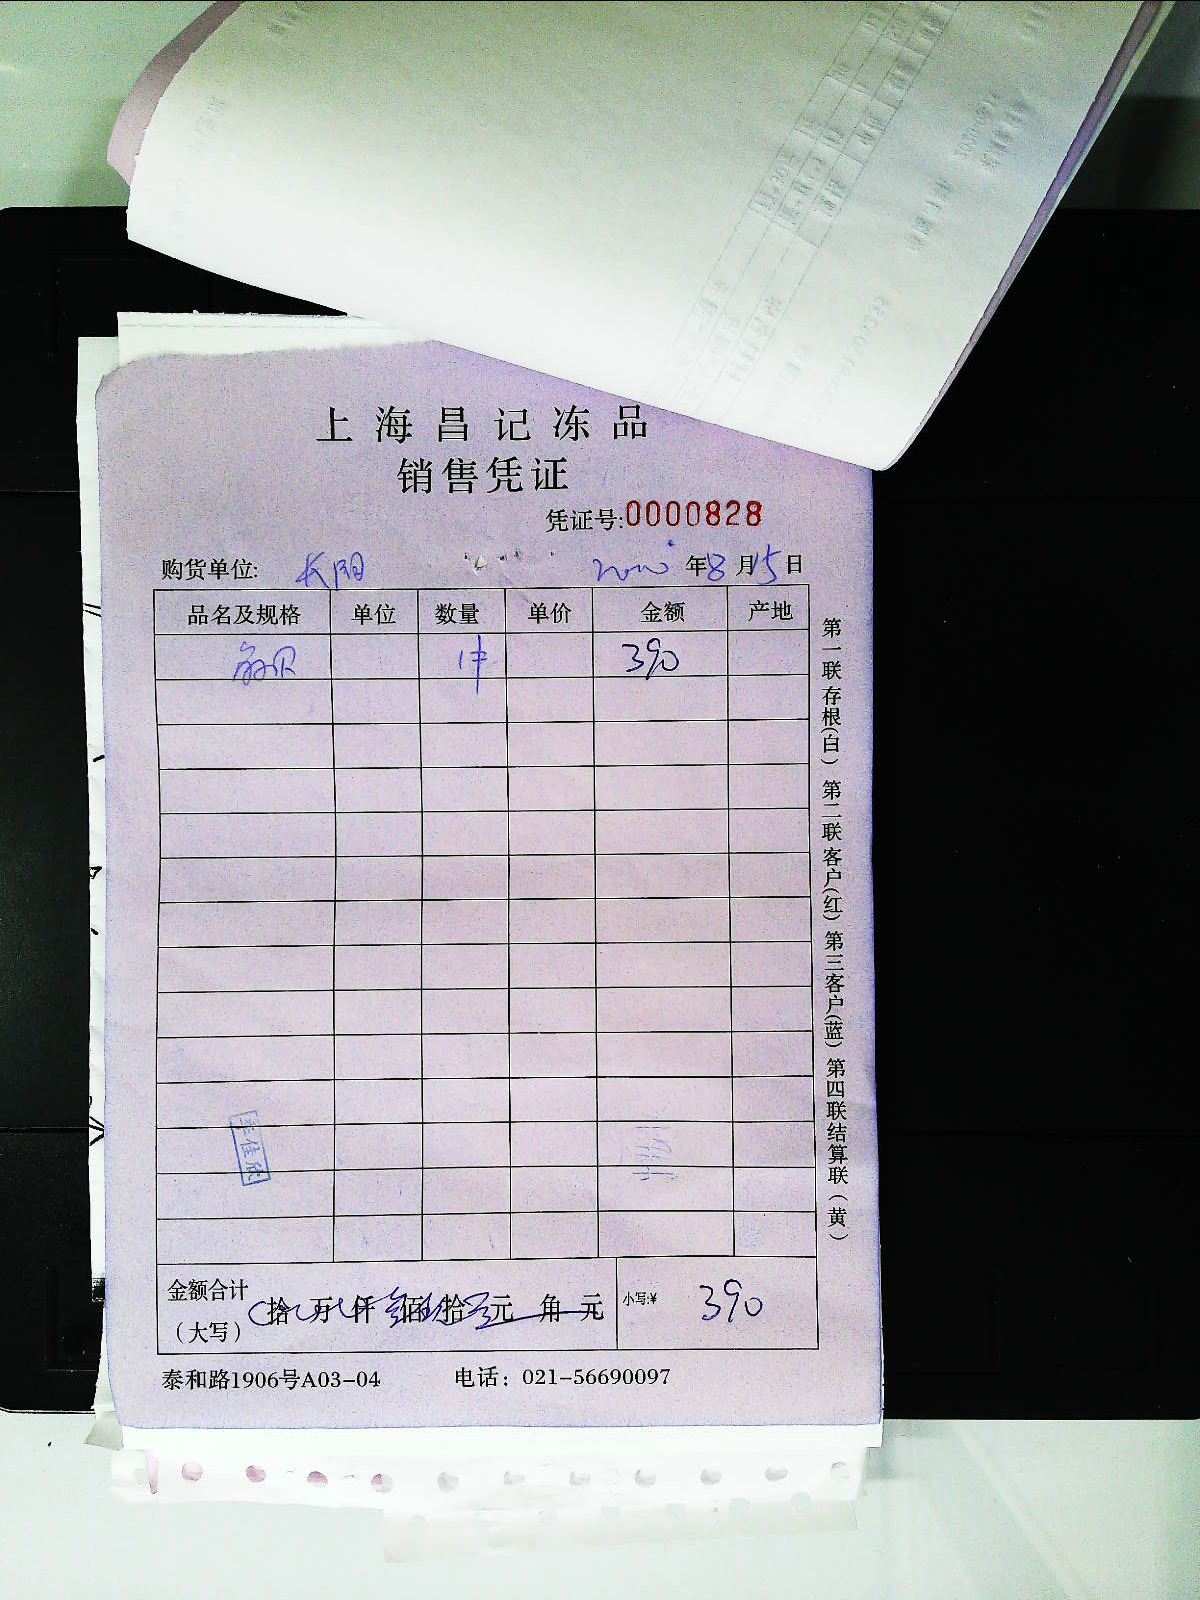 上海昌记冻品
销售凭证
凭证号:0000828
购货单位: 长阳 年8月15日
品名及规格 单位 数量 单价 金额 产地
1件 390
金额合计
(大写) 拾 万 仟 佰 拾 元 角 元 小写:¥ 390
泰和路1906号A03-04 电话: 021-56690097
第一联存根(白) 第二联客户(红) 第三客户(蓝) 第四联结算联(黄)